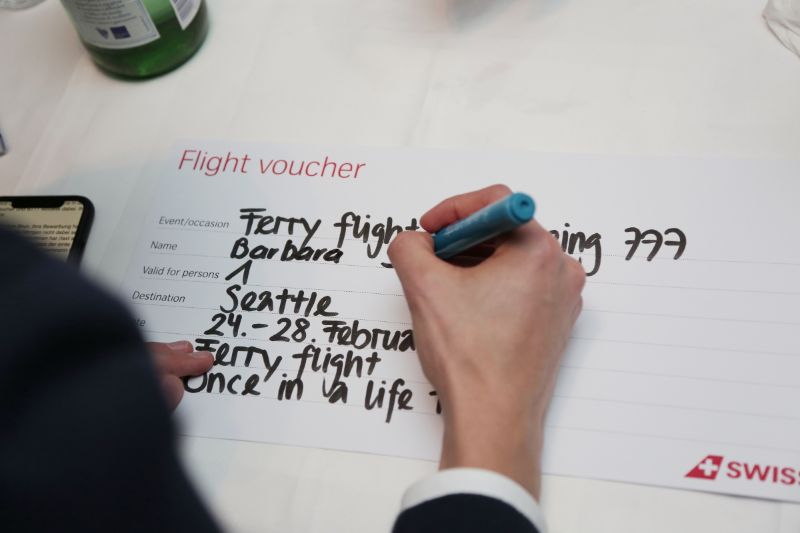 Flight voucher
Event/occasion Ferry flight ing 777
Name Barbara
Valid for persons 1
Destination Seattle
24.-28. Februa
Ferry flight
Once in a life
SWISS